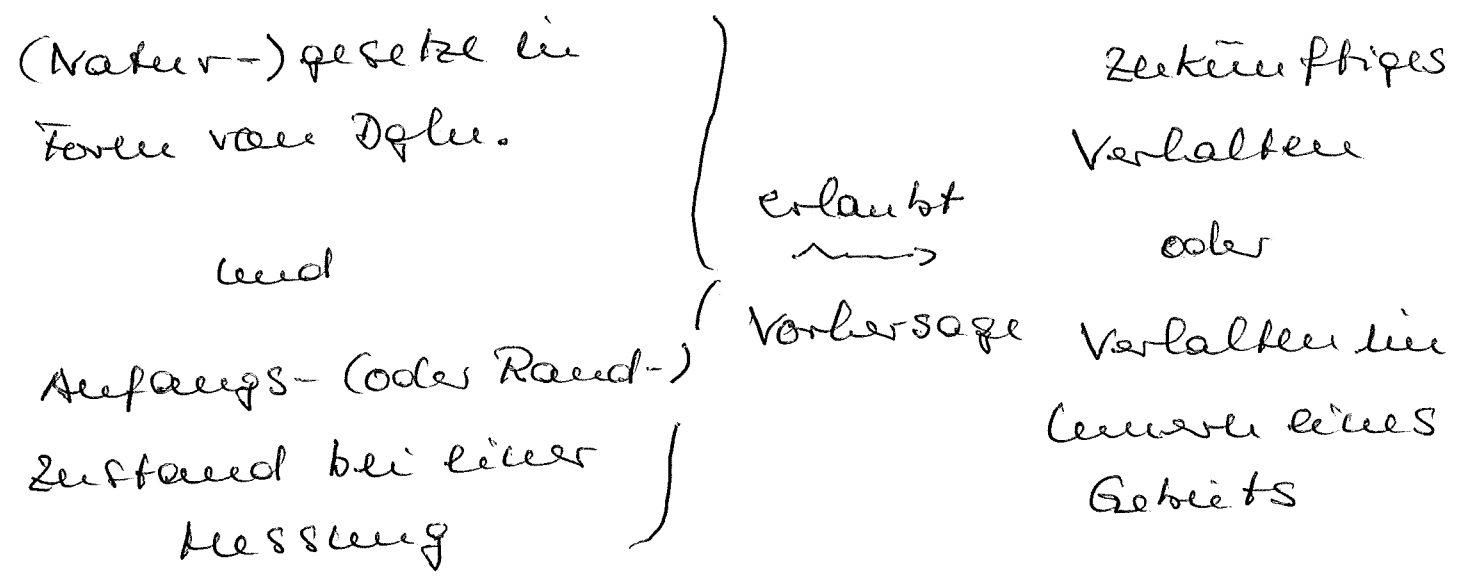 (Natur-)gesetze in
Form von Dgln.
und
Anfangs- (oder Rand-)
Zustand bei einer
Messung
erlaubt
Vorhersage
Zukünftiges
Verhalten
oder
Verhalten im
Innern eines
Gebiets